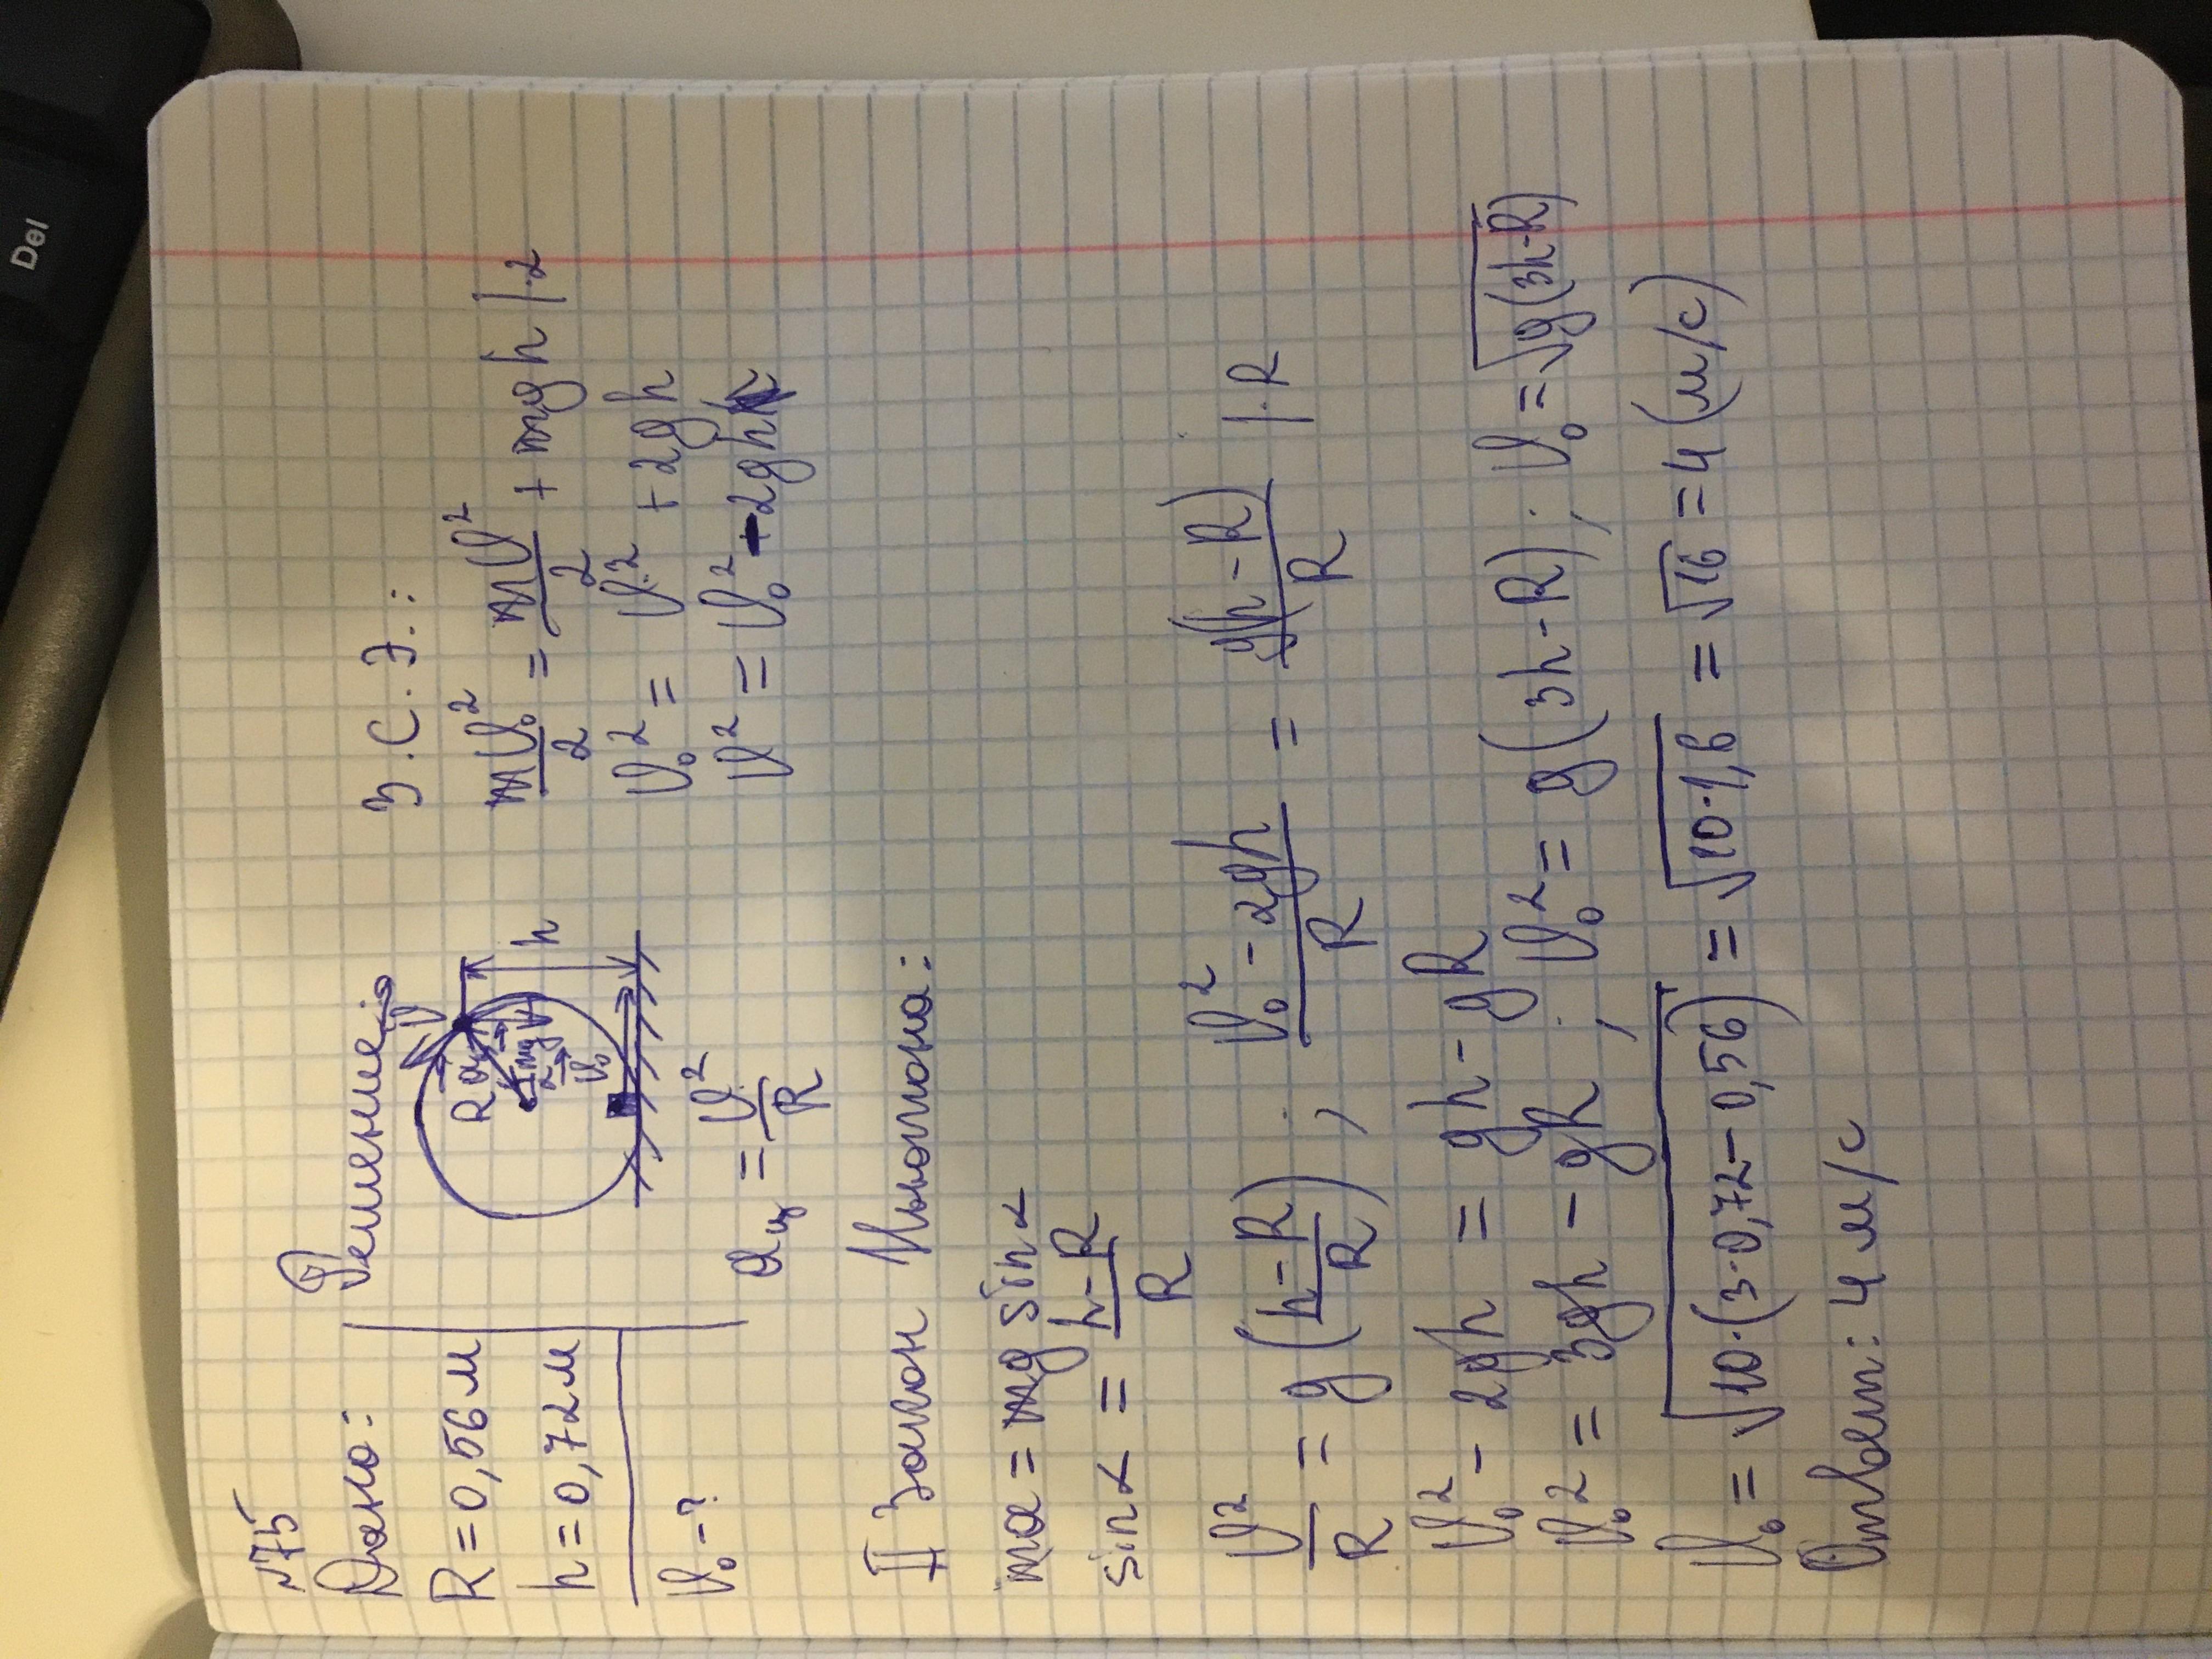 №75
Дано:
R = 0,56 м
h = 0,72 м
υ₀ - ?
Решение
υ
R aц mg
α υ₀
h
aц = υ²/R
З.С.Э.:
mυ₀²/2 = mυ²/2 + mgh |·2
υ₀² = υ² + 2gh
υ² = υ₀² - 2gh
II Закон Ньютона:
ma = mg sinα
sinα = (h-R)/R
υ²/R = g((h-R)/R); (υ₀² - 2gh)/R = g(h-R)/R |·R
υ₀² - 2gh = gh - gR
υ₀² = 3gh - gR; υ₀² = g(3h-R); υ₀ = √(g(3h-R))
υ₀ = √(10·(3·0,72-0,56)) = √(10·1,6) = √16 = 4 (м/с)
Ответ: 4 м/с
Del